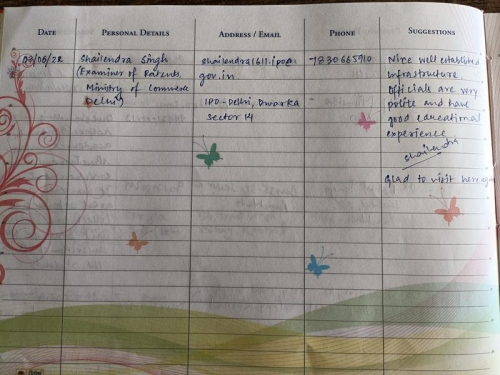 DATE PERSONAL DETAILS ADDRESS / EMAIL PHONE SUGGESTIONS
03/06/22 Shailendra Singh shailendra1611.ipo@ 7830665910 Nice well established
(Examiner of Patents, gov.in infrastructure
Ministry of Commerce Officials are very
Delhi) IPO-Delhi, Dwarka polite and have
Sector 14 good educational
experience
Shailendra
Glad to visit here again